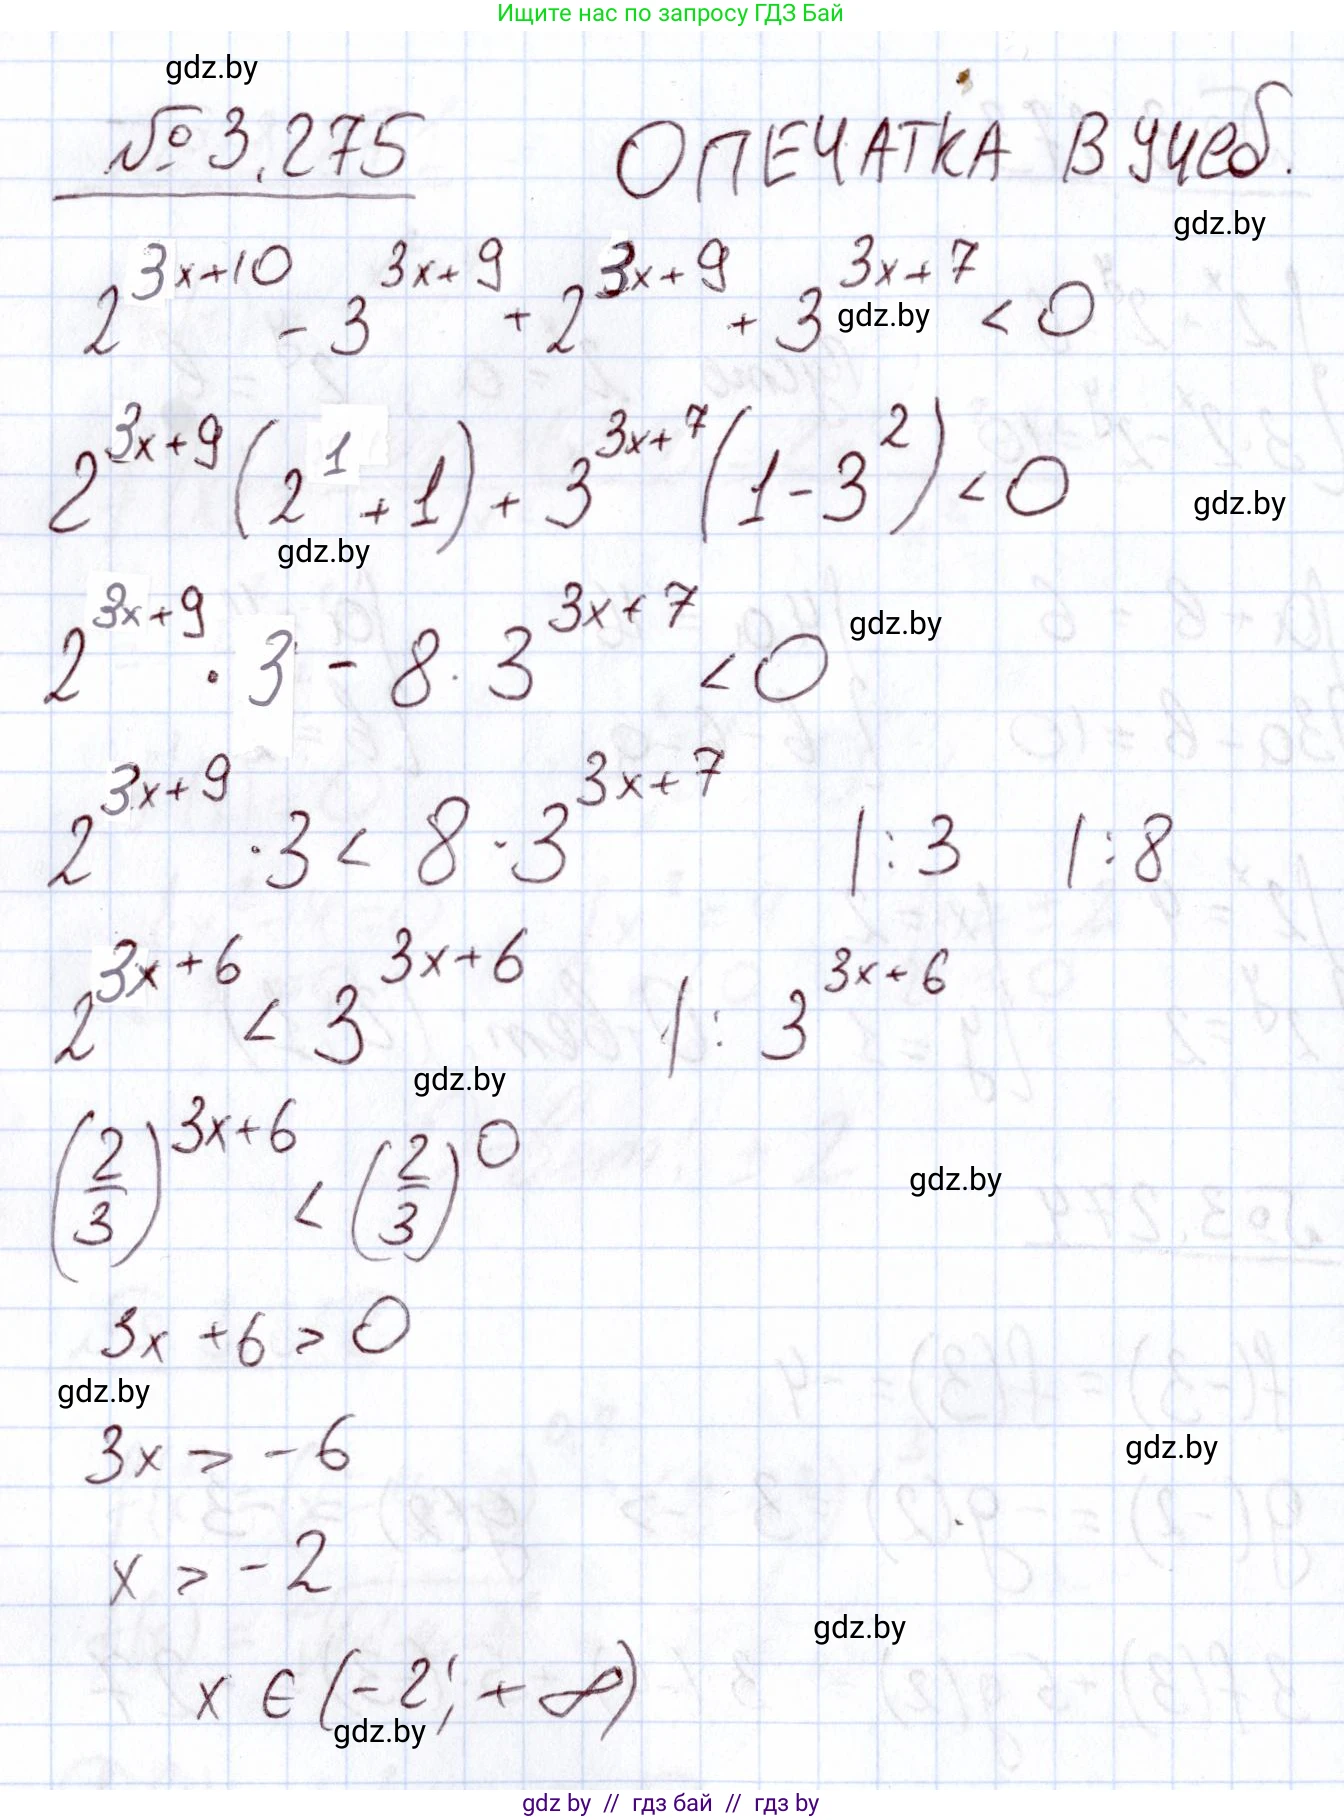 Ищите нас по запросу ГДЗ Бай
gdz.by
№ 3.275 ОПЕЧАТКА В учеб.
gdz.by
2^{3x+10} - 3^{3x+9} + 2^{3x+9} + 3^{3x+7} < 0
gdz.by
2^{3x+9} (2^1 + 1) + 3^{3x+7} (1 - 3^2) < 0
gdz.by
gdz.by
2^{3x+9} · 3 - 8 · 3^{3x+7} < 0
gdz.by
2^{3x+9} · 3 < 8 · 3^{3x+7} |:3 |:8
2^{3x+6} < 3^{3x+6} |: 3^{3x+6}
gdz.by
(2/3)^{3x+6} < (2/3)^0
gdz.by
3x + 6 > 0
gdz.by
3x > -6
gdz.by
x > -2
gdz.by
x ∈ (-2; +∞)
gdz.by
gdz by // гдз бай // гдз by